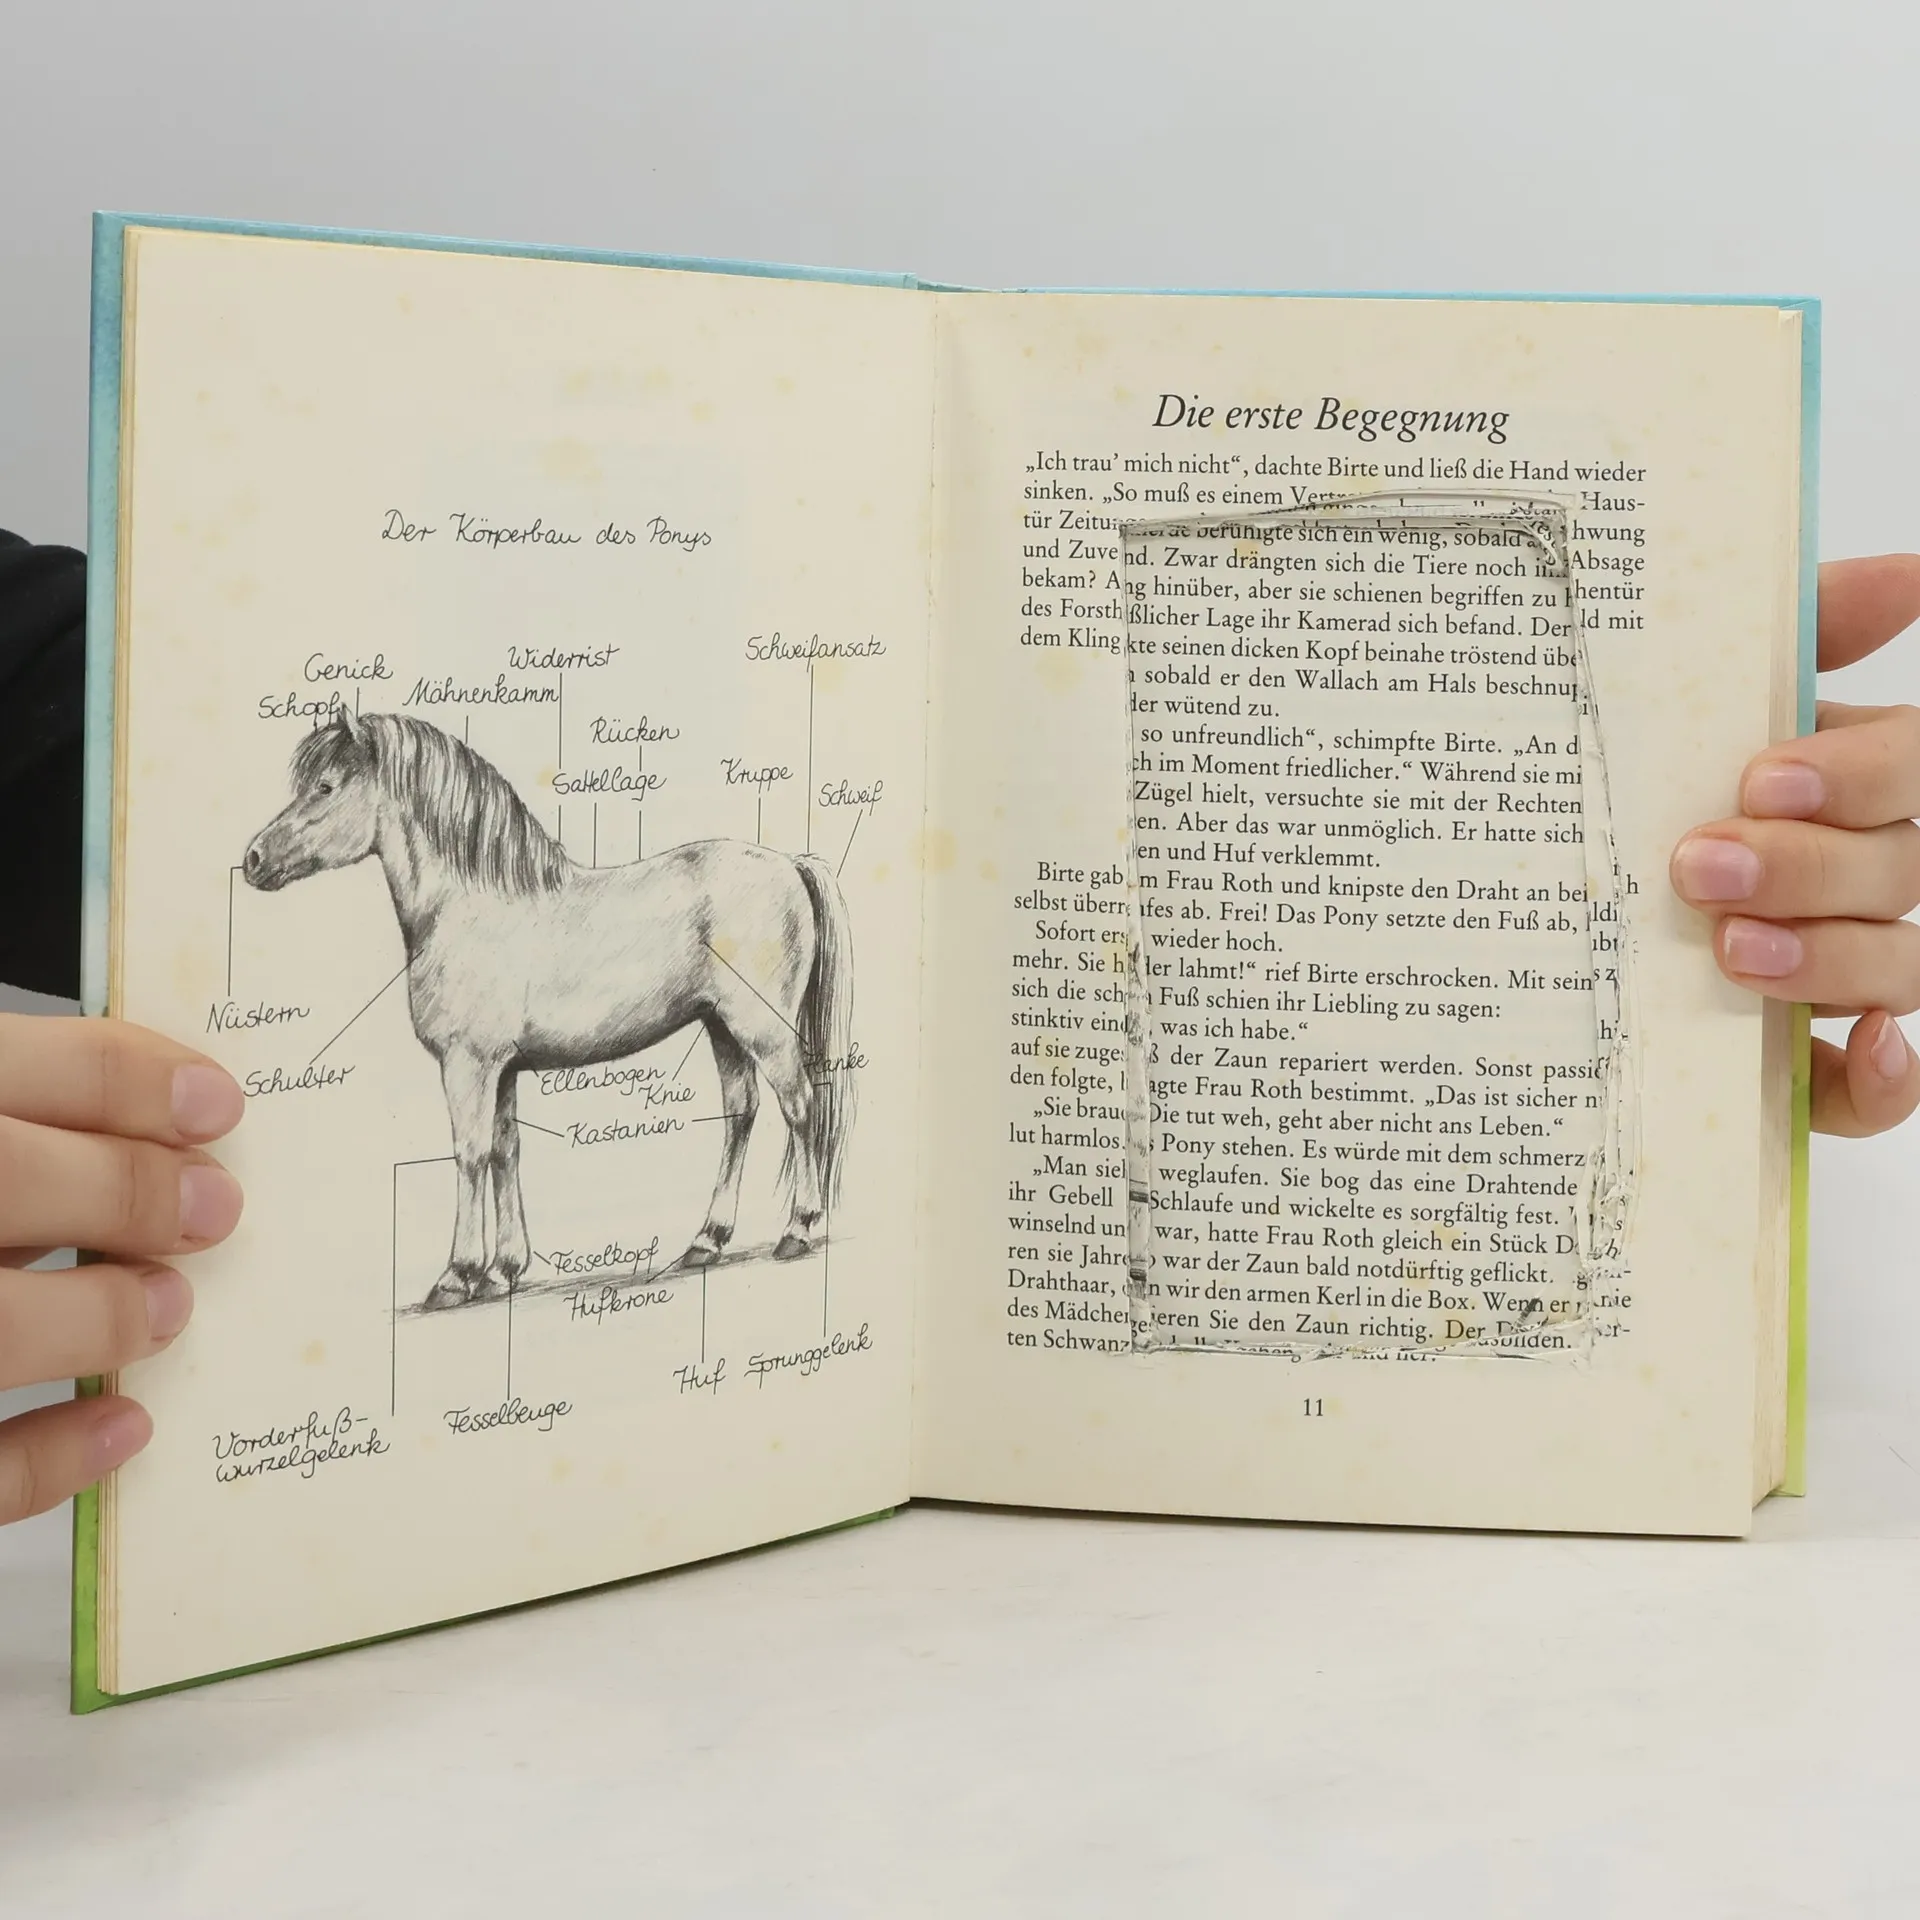 Der Körperbau des Ponys
Genick
Widerrist
Schweifansatz
Schopf
Mähnenkamm
Rücken
Sattellage
Kruppe
Schweif
Nüstern
Schulter
Ellenbogen
Flanke
Knie
Kastanien
Fesselkopf
Hufkrone
Huf
Sprunggelenk
Fesselbeuge
Vorderfuß-
wurzelgelenk
Die erste Begegnung
„Ich trau’ mich nicht“, dachte Birte und ließ die Hand wieder
sinken. „So muß es einem Haus-
tür hwung
berühigte sich ein wenig, sobald
und Zuve nd. Zwar drängten sich die Tiere noch Absage
bekam? A ng hinüber, aber sie schienen begriffen zu hentür
des Forsth ßlicher Lage ihr Kamerad sich befand. Der ld mit
dem Kling kte seinen dicken Kopf beinahe tröstend übe
sobald er den Wallach am Hals beschnup
der wütend zu.
so unfreundlich“, schimpfte Birte. „An d
ch im Moment friedlicher.“ Während sie mi
Zügel hielt, versuchte sie mit der Rechten
en. Aber das war unmöglich. Er hatte sich
en und Huf verklemmt.
Birte gab m Frau Roth und knipste den Draht an bei h
selbst überr ufes ab. Frei! Das Pony setzte den Fuß ab,
Sofort ers wieder hoch.
mehr. Sie h der lahmt!“ rief Birte erschrocken. Mit sein
sich die sch Fuß schien ihr Liebling zu sagen:
stinktiv eind , was ich habe.“
auf sie zuge ß der Zaun repariert werden. Sonst passie
den folgte, agte Frau Roth bestimmt. „Das ist sicher n
„Sie brauc Die tut weh, geht aber nicht ans Leben.“
lut harmlos. s Pony stehen. Es würde mit dem schmerz
„Man sieh weglaufen. Sie bog das eine Drahtende
ihr Gebell Schlaufe und wickelte es sorgfältig fest.
winselnd un war, hatte Frau Roth gleich ein Stück D
ren sie Jahre o war der Zaun bald notdürftig geflickt.
Drahthaar, n wir den armen Kerl in die Box. Wenn er knie
des Mädchen ieren Sie den Zaun richtig. Der
ten Schwanz
11